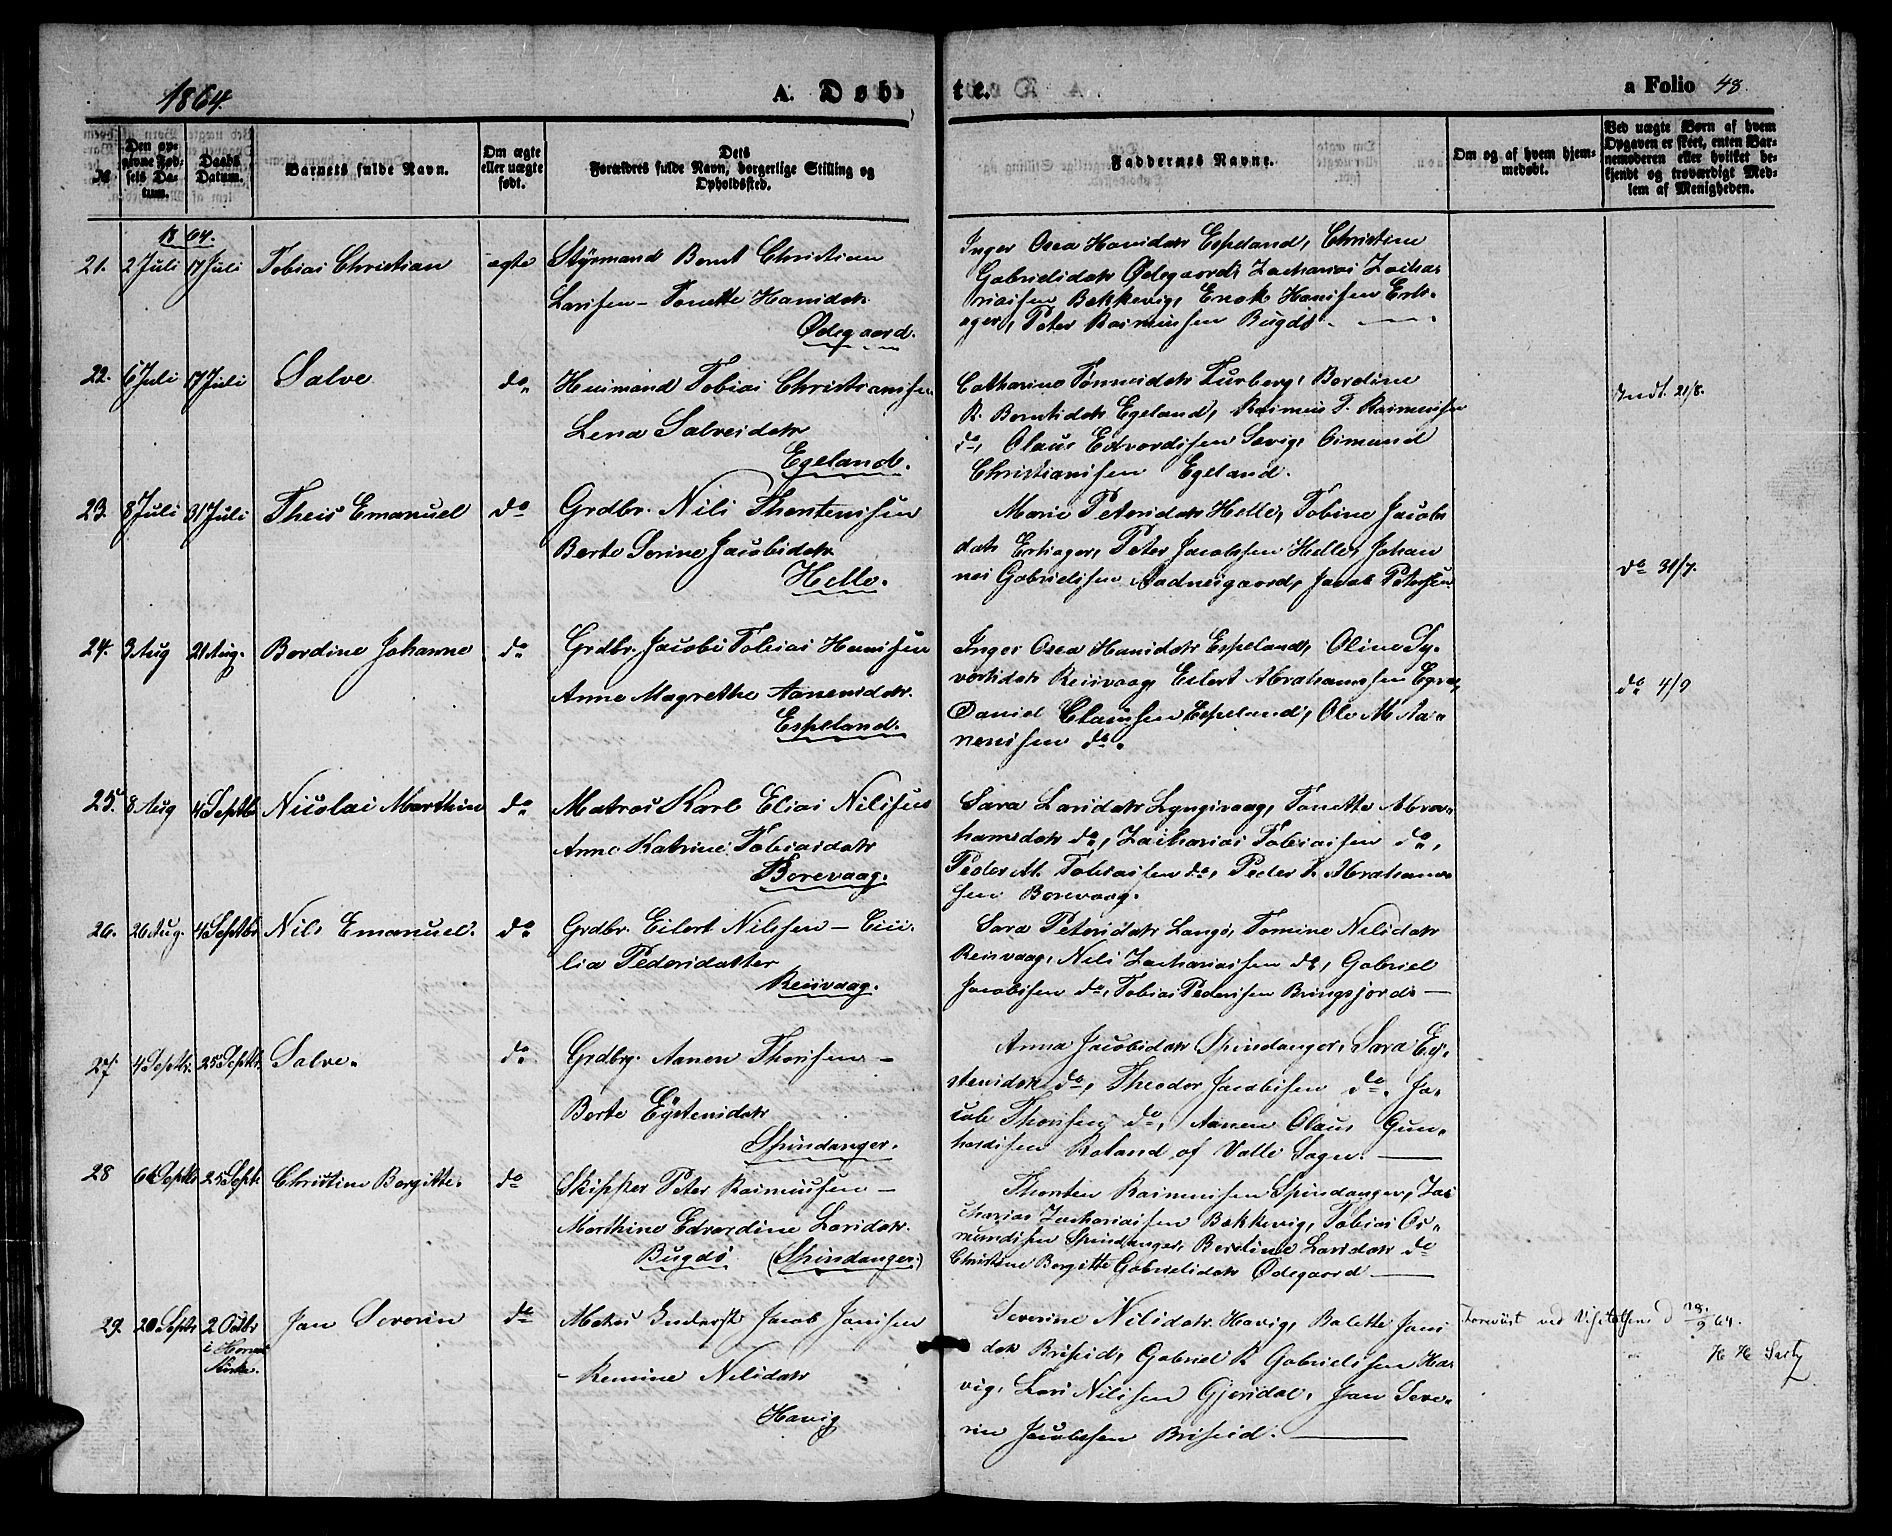 1864.
A. Døbte.
a Folio 48
No
Den opgivne Fødsels Datum.
Daabs Datum.
Barnets fulde Navn.
Om ægte eller uægte født.
Dets Forældres fulde Navn, borgerlige Stilling og Opholdssted.
Faddernes Navne.
Om og af hvem hjemmedøbt.
Ved uægte Børn af hvem Opgaven er skeet, enten Barnemoderen eller hvilket bekjendt og troværdigt Medlem af Menigheden.
1864.
21. 2 Juli 17 Juli Tobias Christian ægte Styrmand Bernt Christian
Larssen – Tonette Hansdatr
Ødegaard.
Inger Osea Hansdatr Espeland, Christine
Gabrielsdatr Ødegaard, Zacharias Zacha-
riassen Bakkevig, Enok Hanssen Erts-
ager, Peter Rasmussen Bugdø.
22. 6 Juli 17 Juli Salve do Huusmand Tobias Christianssen
Lena Salvesdatr
Egeland.
Cathrine Tønnesdatr Furberg, Berdine
R. Berntsdatr Egeland, Rasmus T. Rasmussen
do, Olaus Edvardssen Sævig, Osmund
Christianssen Egeland.
Indt. 21/8.
23. 8 Juli 31 Juli Theis Emanuel do Grdbr. Nils Thorstenssen
Berte Sørine Jacobsdatr
Helle.
Marie Petersdatr Helle, Tobine Jacobs
datr Ertsager, Peter Jacobssen Helle, Johan
nes Gabrielssen Aadnesgaard, Jacob Peterssen
do 31/7.
24. 3 Aug 21 Aug. Berdine Johanne do Grdbr. Jacob Tobias Hanssen
Anne Magrethe Aanensdatr.
Espeland.
Inger Osea Hansdatr Espeland, Oline Sy-
vertsdatr Reisvaag, Eilert Abrahamssen
Daniel Claussen Espeland, Ole M Aa-
nenssen do.
do 4/9
25. 8 Aug 4 Septbr Nicolai Marthin do Matros Karl Elias Nilssen
Anne Katrine Tobiasdatr
Borevaag.
Sara Larsdatr Lyngsvaag, Tonette Abra-
hamsdatr do, Zacharias Tobiassen do,
Peder M. Tobiassen do, Peder T. Abraham-
sen Borevaag.
26. 26 Aug. 4 Septbr Nils Emanuel. do Grdbr. Eilert Nilssen – Ceci-
lia Pedersdatter
Reisvaag.
Sara Petersdatr Langø, Tomine Nilsdatr
Reisvaag, Nils Zachariassen do, Gabriel
Jacobssen do, Tobias Pederssen Bringsjord –
27. 4 Septbr. 25 Septbr. Salve. do Grdbrg. Aanen Thorssen –
Berte Eystensdatr
Spindanger.
Anna Jacobsdatr Spindanger, Sara Ey-
stensdatr do, Theodor Jacobssen do. Ja-
cob Thorssen do, Aanen Olaus Gun-
hardssen Roland af Valle Sogn. –
28 6 Septbr 25 Septbr. Christine Bergitte. do Skipper Peter Rasmussen –
Marthine Edvardine Larsdatr.
Bugdø (Spindanger.)
Thorsten Rasmussen Spindanger, Zac
harias Zachariassen Bakkevig, Tobias Os-
mundssen Spindanger, Berdine Larsdatr do
Christine Bergitte Gabrielsdatr Ødegaard –
29. 20 Septbr 2 Octbr i Kirke. Jan Severin do Jacob Janssen
– Remine Nilsdatr
Havig
Severine Nilsdatr Havig, Balette Jans
datr Briseid, Gabriel R Gabrielssen Ha-
vig, Lars Nilssen Gjersdal, Jan Seve-
rin Jacobssen Briseid. –
Foreviist ved Visitatsen d 28/9 64.